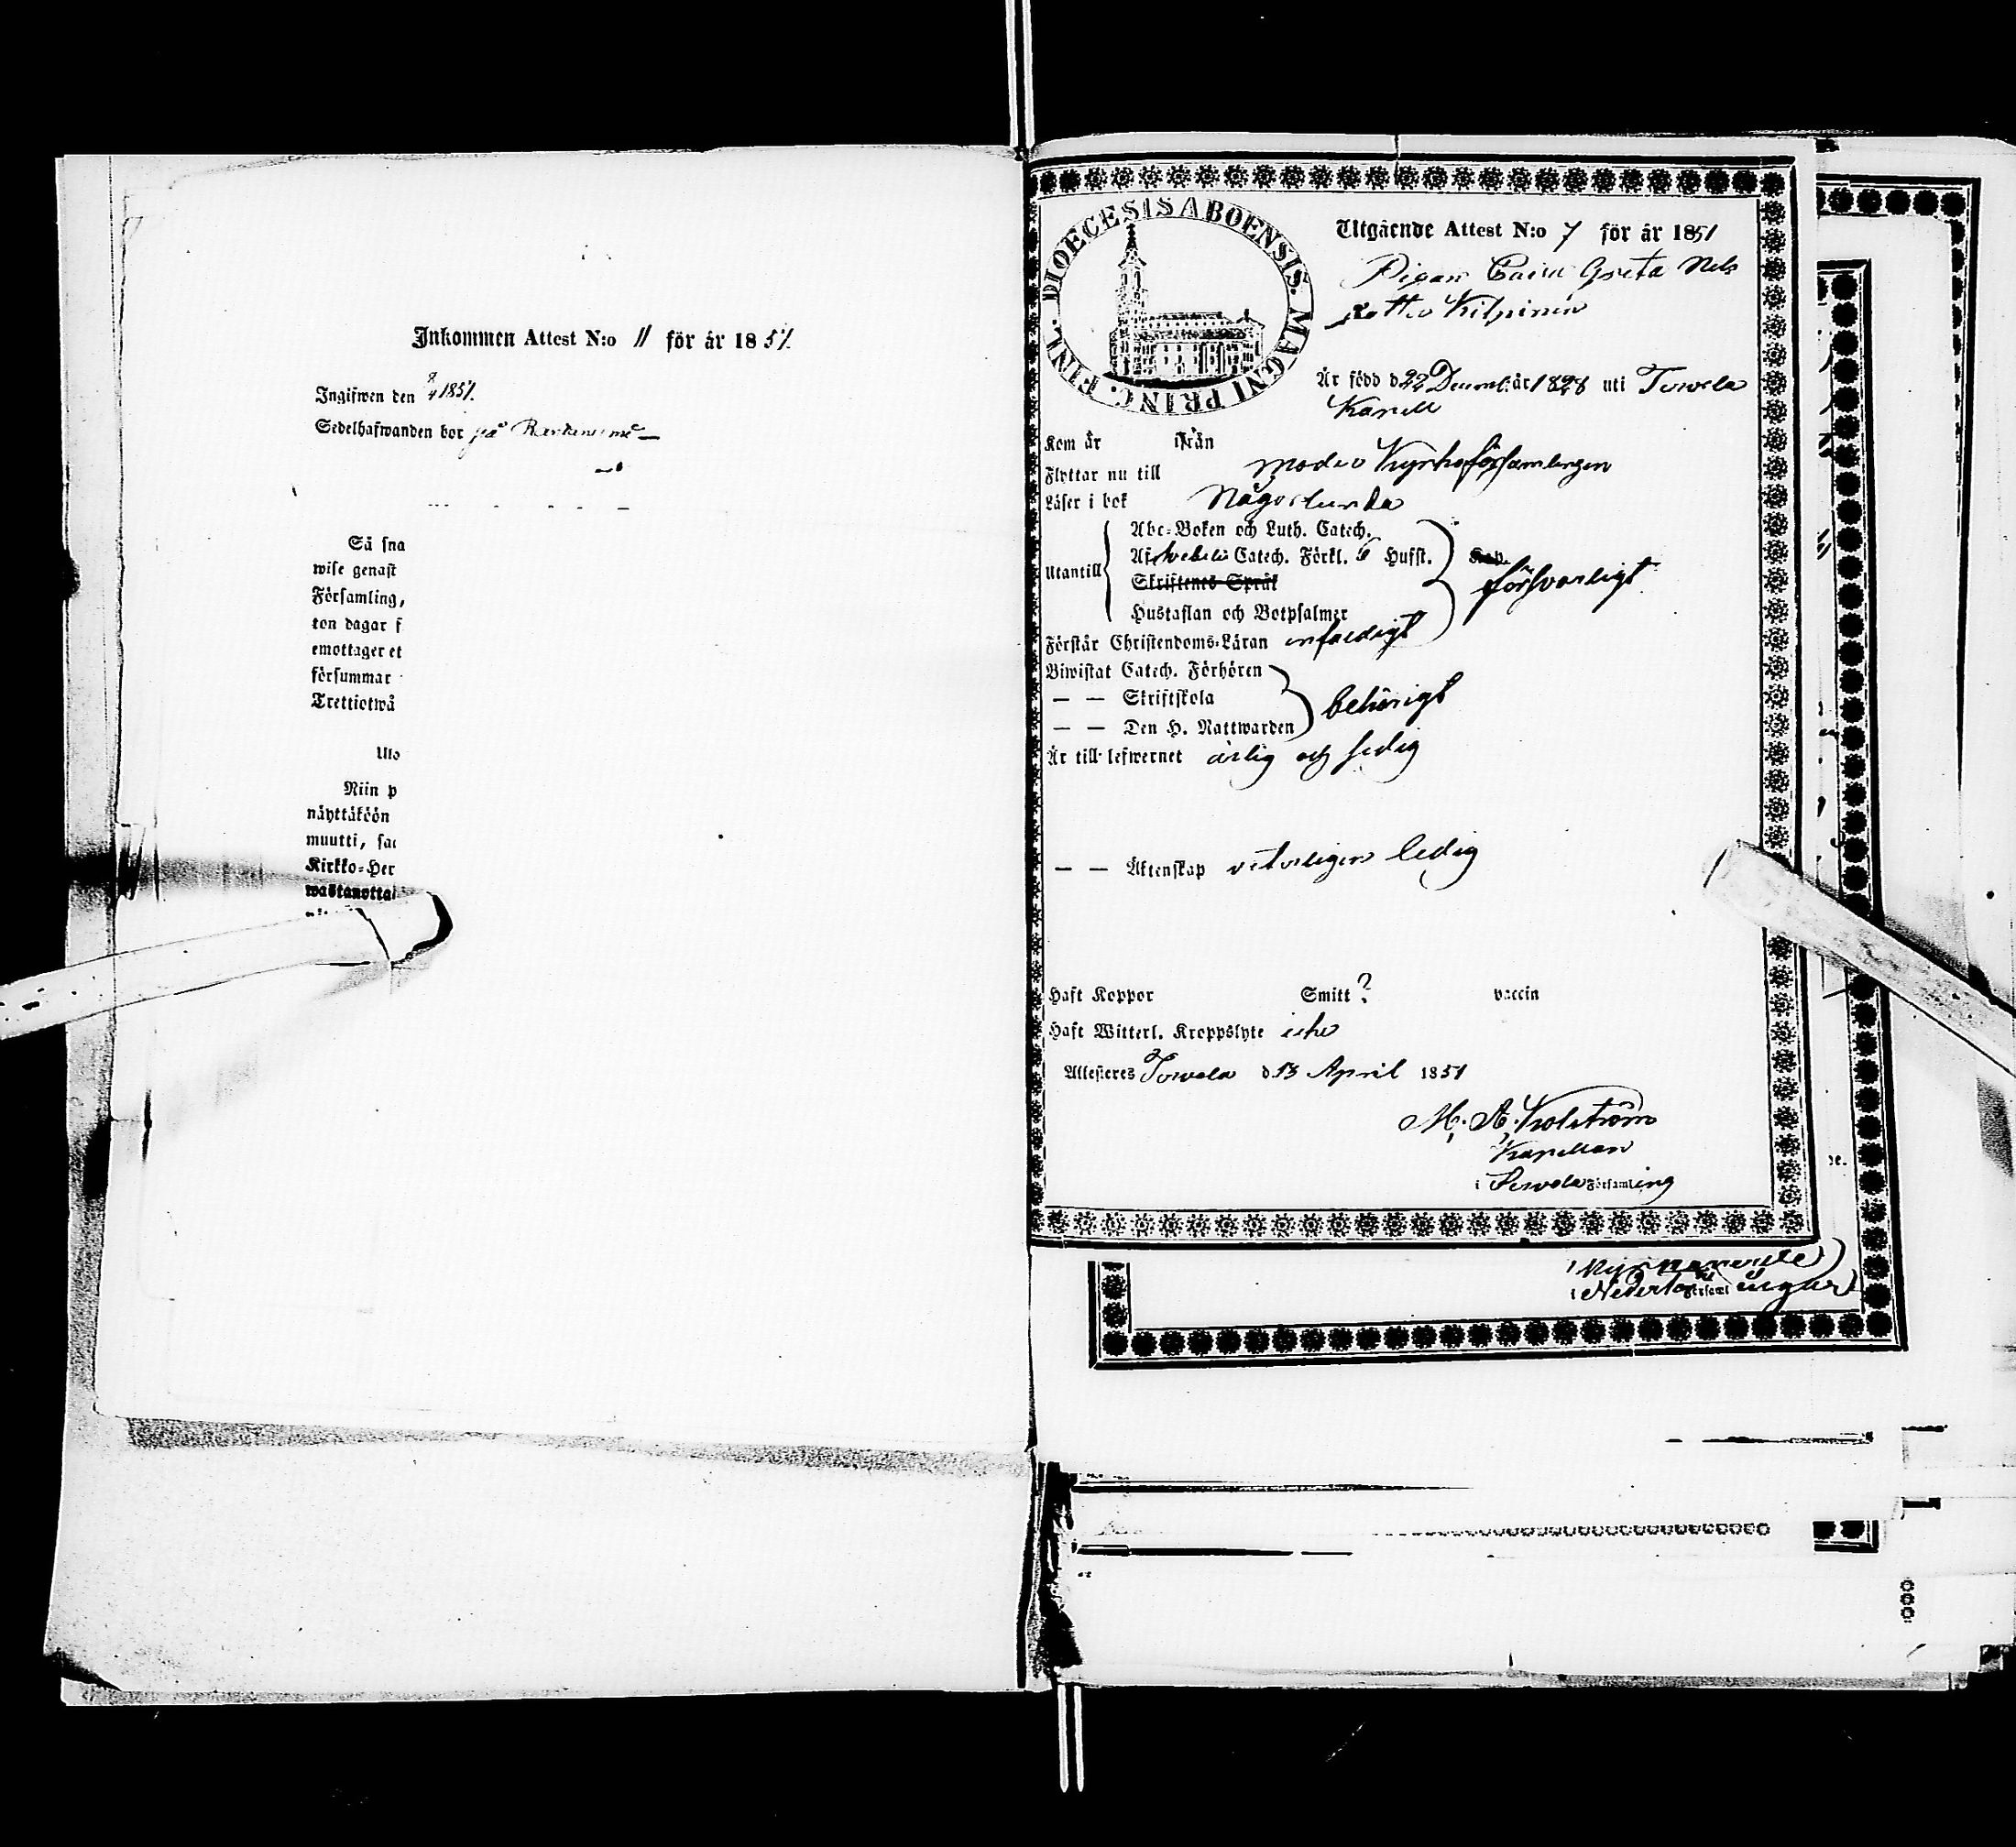 Inkommen Attest N:o 11 för år 1851.
Ingifwen den 9/4 1851.
Sedelhafwanden bor på
Så sna
wise genast
Församling,
ton dagar f
emottager et
försummar
Trettiotwå
Uto
Niin p
näyttäköön
muutti, sa
Kirkko-Her
wastanotta
DIOECESIS ABOENSIS. MAGNI PRINC. FINL.
Utgående Attest N:o 7 för år 1851
Pigan Caisa Greta Nils
dotter Kilpinen
Är född d 22 Decemb: år 1828 uti Towela
Kapell
Kom år ifrån
Flyttar nu till moder Kyrkoförsamlingen
Läser i bok Någorlunda
Utantill
Abc-Boken och Luth. Catech.
Af Swebelii Catech. Förkl. 6 Hufst.
Skriftenes Språk
Hustaflan och Botpsalmer
försvarligt
Förstår Christendoms-Läran enfaldigt
Biwistat Catech. Förhören
— — Skriftskola
— — Den H. Nattwarden
behörigt
Är till lefwernet ärlig och sedig
— — Äktenskap veterligen ledig
Haft Koppor Smitt? vaccin
Haft Witterl. Kroppslyte icke
Attesteres Towela d 13 April 1851
M. A. Kolström
Kapellan
i Towela Församling